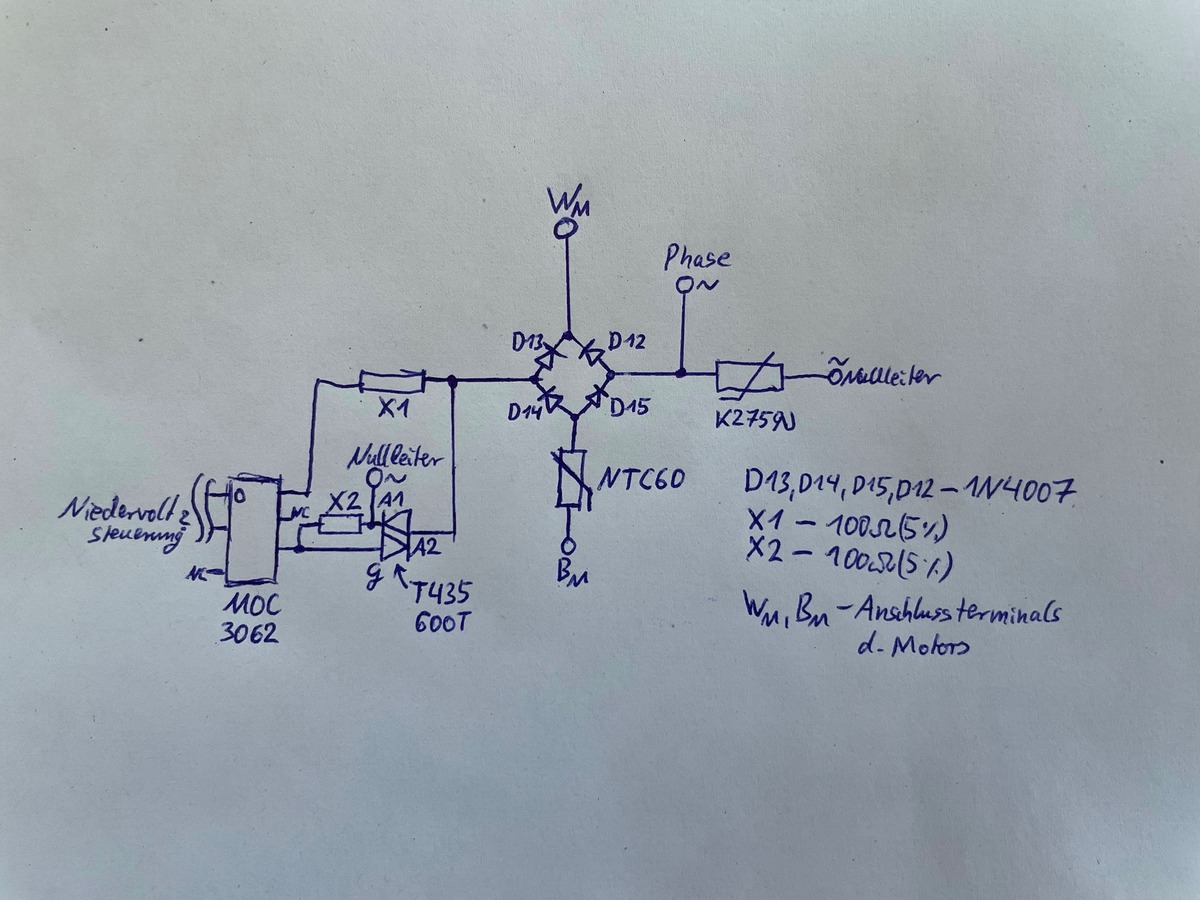 WM
Phase
~
D13
D12
~
Nullleiter
X1
D14
D15
K275g
Nullleiter
~
NTC60
D13, D14, D15, D12 – 1N4007
Niedervolt
steuerung
NC
X2
A1
X1 – 100Ω (5%)
A2
X2 – 100Ω (5%)
NC
g
T435
600T
BM
MOC
3062
WM, BM – Anschlussterminals
d. Motors